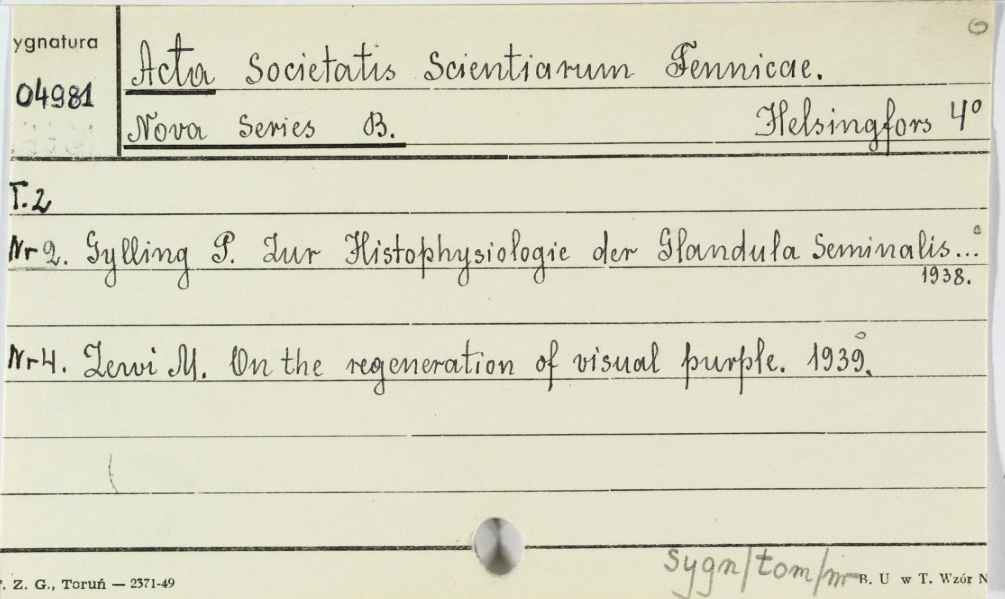 ygnatura
04981
Acta Societatis Scientiarum Fennicae.
Nova Series B. Helsingfors 4°
T.2
Nr 2. Gylling P. Zur Histophysiologie der Glandula Seminalis...
1938.
Nr 4. Zewi M. On the regeneration of visual purple. 1939.
sygn/tom/nr
. Z. G., Toruń — 2371-49
B. U w T. Wzór N